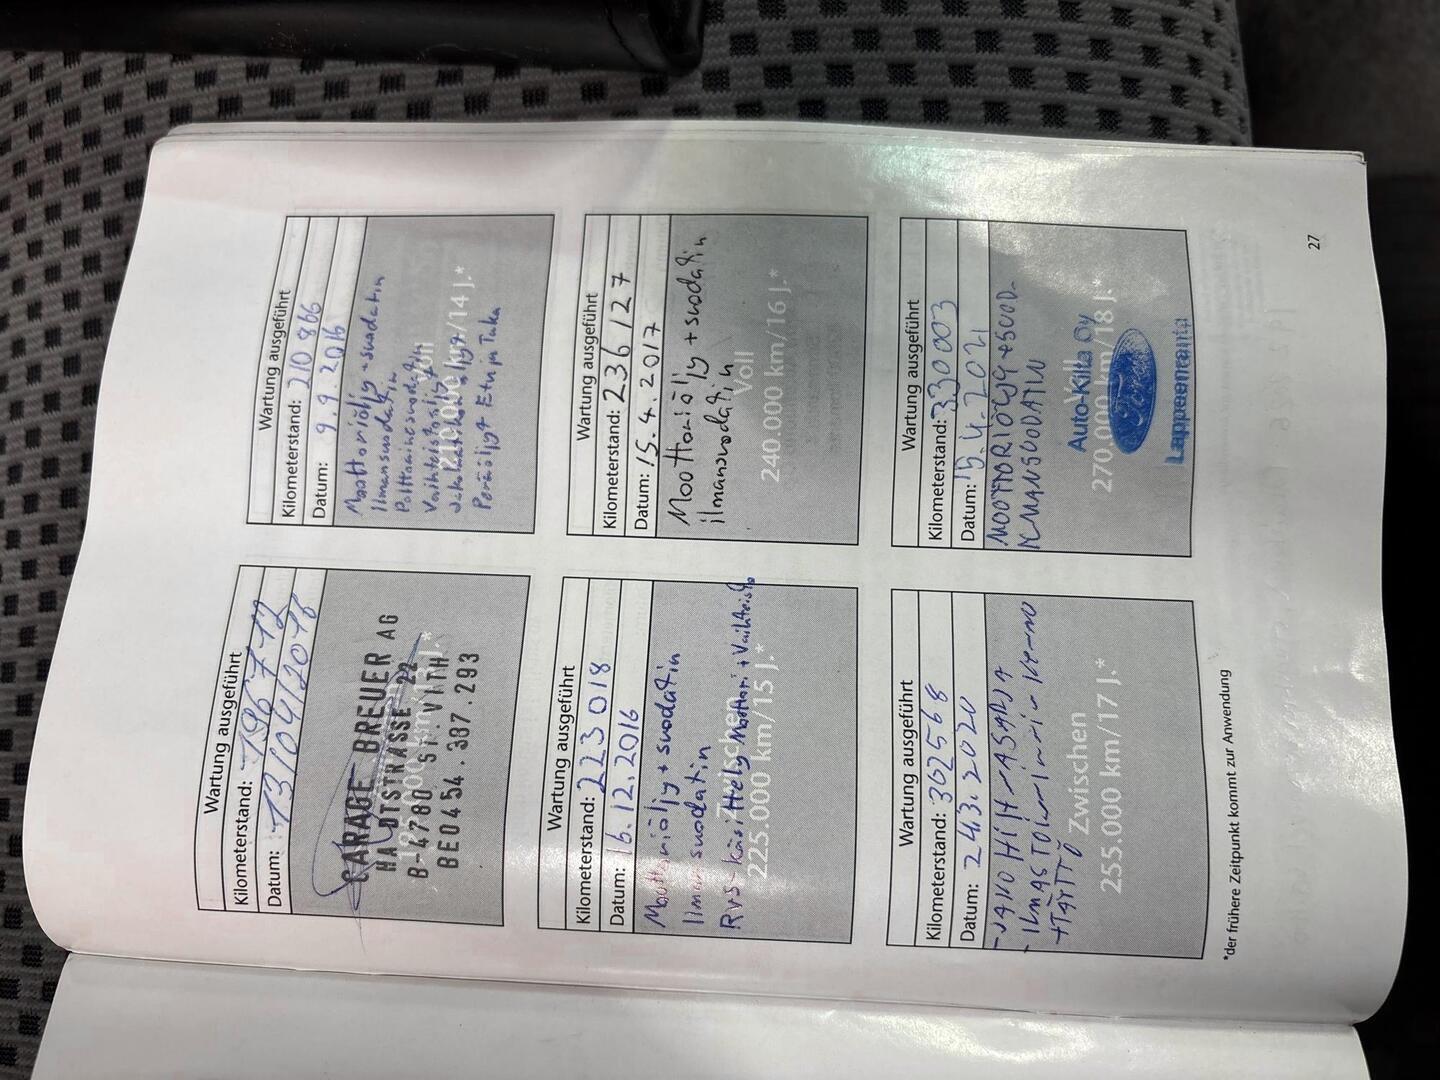 Wartung ausgeführt
Kilometerstand: 196712
Datum: 13/04/2016
GARAGE BREUER AG
HAUPTSTRASSE 22
B-4780 ST.VITH
BE0454.387.293
Wartung ausgeführt
Kilometerstand: 210 866
Datum: 9.9.2016
Moottoriöljy + suodatin
Ilmansuodatin
Polttoainesuodatin
Vaihteistoöljy
Jakolaatikon öljyt
Peräöljyt Etu ja Taka
Voll
210.000 km/14 J.*
Wartung ausgeführt
Kilometerstand: 223 018
Datum: 16.12.2016
Moottoriöljy + suodatin
Ilmansuodatin
RVS-Käsittely Moottori + Vaihteisto
Zwischen
225.000 km/15 J.*
Wartung ausgeführt
Kilometerstand: 236 127
Datum: 15.4.2017
Moottoriöljy + suodatin
ilmansuodatin
Voll
240.000 km/16 J.*
Wartung ausgeführt
Kilometerstand: 302568
Datum: 24.3.2020
+TÄYTTÖ
Zwischen
255.00 km/17 J.*
Wartung ausgeführt
Kilometerstand: 330003
Datum: 15.4.2021
MOOTTORIÖLJY+SUOD.
ILMANSUODATIN
Auto-Kilta Oy
270.000 km/18 J.*
Ford
Lappeenranta
*der frühere Zeitpunkt kommt zur Anwendung
27